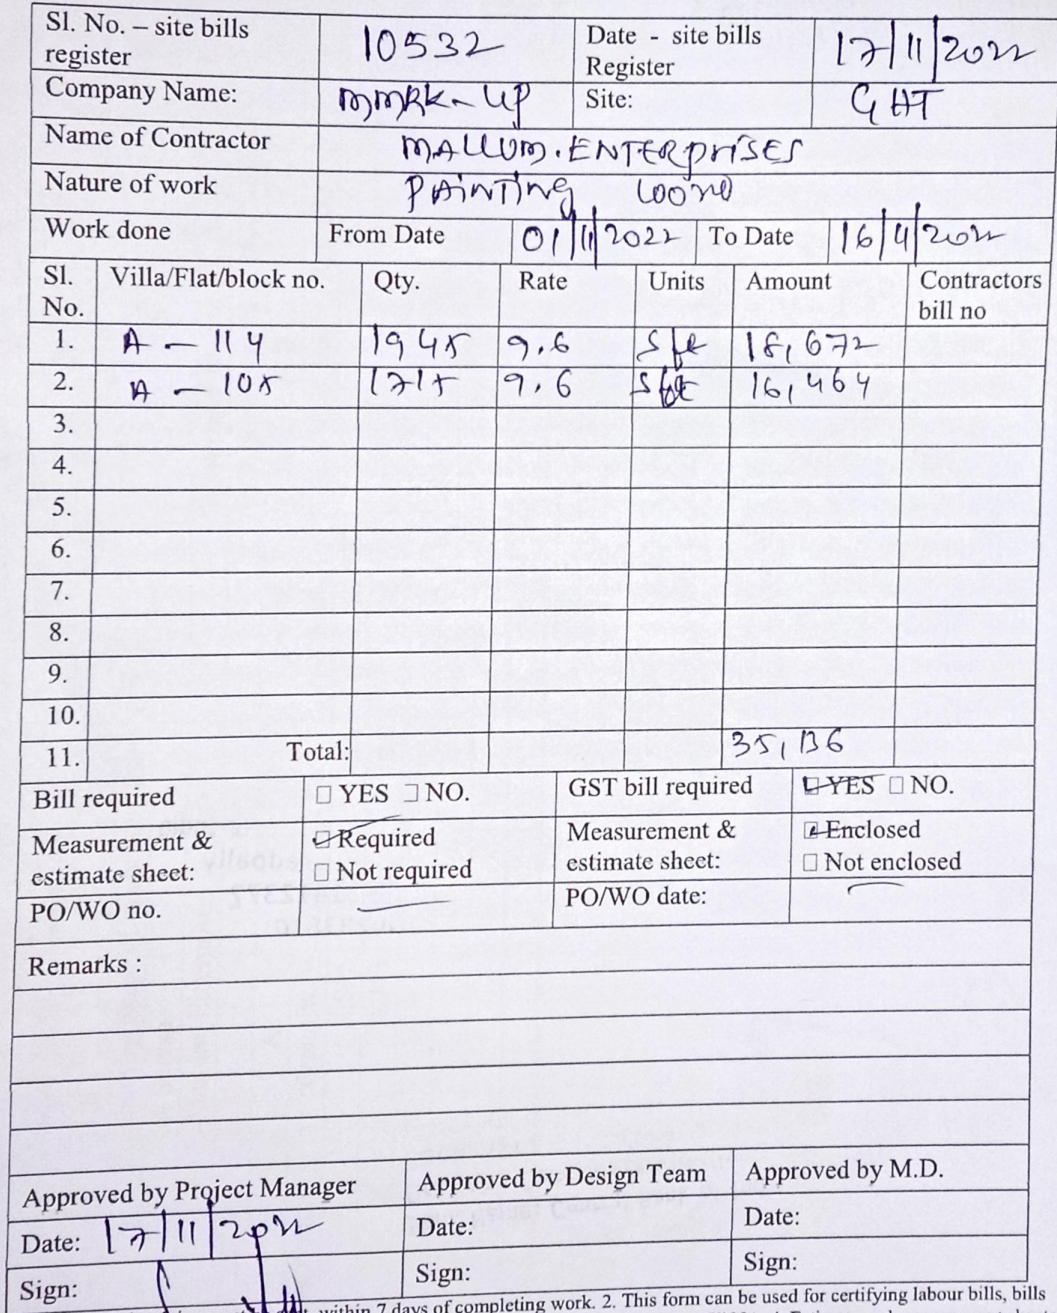 Sl. No. – site bills register 10532 Date - site bills Register 17/11/2022
Company Name: MMRK-UP Site: GHT
Name of Contractor MALLUM.ENTERPRISES
Nature of work PAINTING
Work done From Date 01/11/2022 To Date 16/11/2022
Sl. No. Villa/Flat/block no. Qty. Rate Units Amount Contractors bill no
1. A - 114 1945 9.6 Sft 18,672
2. A - 105 1715 9.6 Sft 16,464
3.
4.
5.
6.
7.
8.
9.
10.
11. Total: 35,136
Bill required ☐ YES ☐ NO. GST bill required ☑ YES ☐ NO.
Measurement & estimate sheet: ☑ Required ☐ Not required Measurement & estimate sheet: ☑ Enclosed ☐ Not enclosed
PO/WO no. PO/WO date:
Remarks :
Approved by Project Manager Approved by Design Team Approved by M.D.
Date: 17/11/2022 Date: Date:
Sign: Sign: Sign:
within 7 days of completing work. 2. This form can be used for certifying labour bills, bills